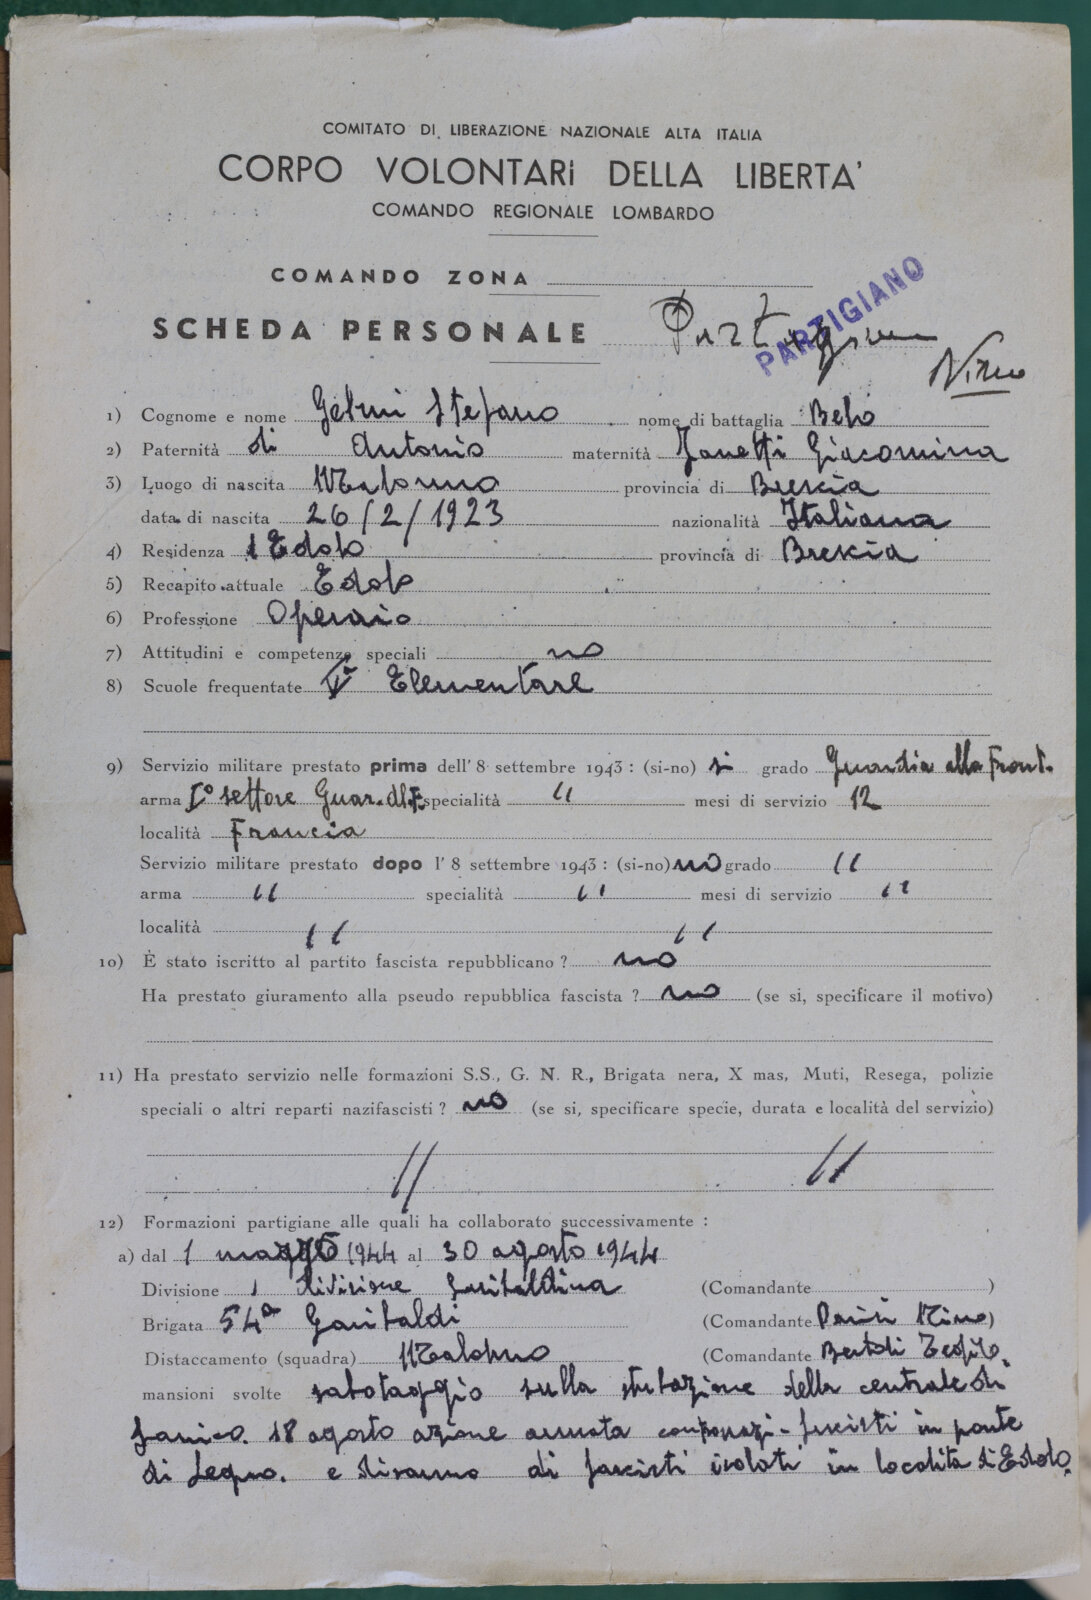 COMITATO DI LIBERAZIONE NAZIONALE ALTA ITALIA
CORPO VOLONTARI DELLA LIBERTA'
COMANDO REGIONALE LOMBARDO
COMANDO ZONA
PARTIGIANO
SCHEDA PERSONALE Partigiano
1) Cognome e nome Gelmi Stefano nome di battaglia Belo
2) Paternità di Antonio maternità Zanetti Giacomina
3) Luogo di nascita Malonno provincia di Brescia
data di nascita 26/2/1923 nazionalità Italiana
4) Residenza Edolo provincia di Brescia
5) Recapito attuale Edolo
6) Professione Operaio
7) Attitudini e competenze speciali no
8) Scuole frequentate Vª Elementare
9) Servizio militare prestato prima dell' 8 settembre 1943 : (si-no) si grado Guardia alla Front.
arma Iº settore Guar. al. F. specialità " mesi di servizio 12
località Francia
Servizio militare prestato dopo l' 8 settembre 1943 : (si-no) no grado "
arma " specialità " mesi di servizio "
località " "
10) È stato iscritto al partito fascista repubblicano ? no
Ha prestato giuramento alla pseudo repubblica fascista ? no (se si, specificare il motivo)
11) Ha prestato servizio nelle formazioni S.S., G. N. R., Brigata nera, X mas, Muti, Resega, polizie
speciali o altri reparti nazifascisti ? no (se si, specificare specie, durata e località del servizio)
" "
12) Formazioni partigiane alle quali ha collaborato successivamente :
a) dal 1 maggio 1944 al 30 agosto 1944
Divisione divisione Garibaldina (Comandante )
Brigata 54ª Garibaldi (Comandante Parisi Nino)
Distaccamento (squadra) Malonno (Comandante Bertoli Teofilo.
mansioni svolte sabotaggio sulla della centrale di
18 agosto azione armata contro nazi-fascisti in ponte
di Legno. e disarmo di fascisti isolati in località di Edolo.